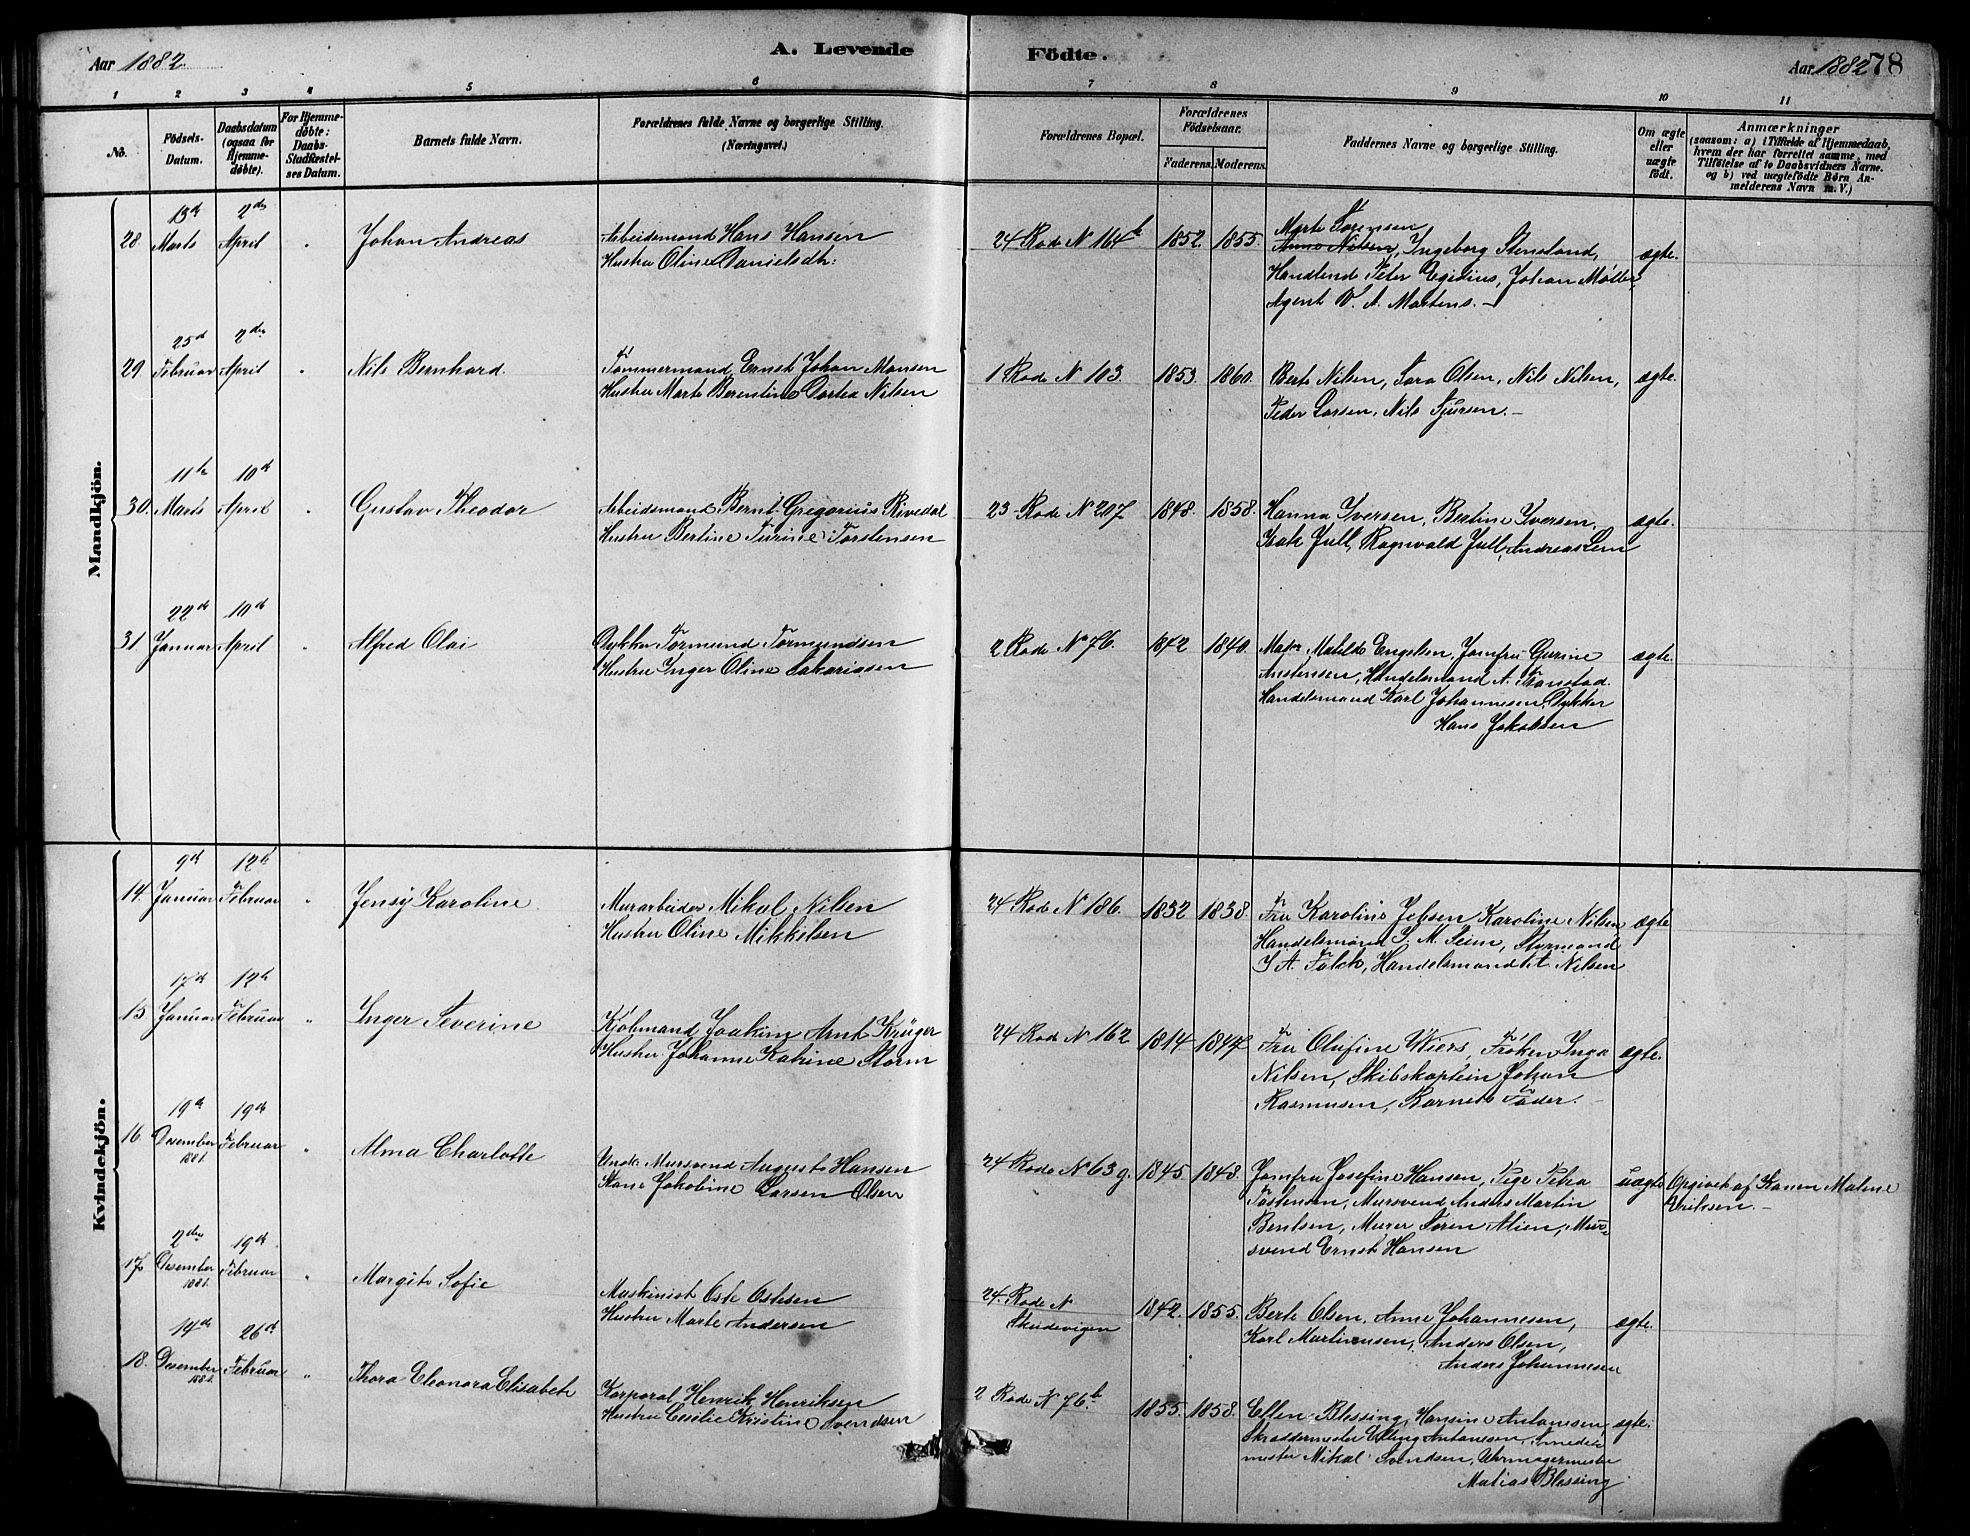 Aar 1882.
A. Levende Födte.
Aar 1882 78
1 2 3 4 5 6 7 8 9 10 11
No.
Födsels-Datum.
Daabsdatum (ogsaa for Hjemmedöbte).
For Hjemmedöbte: Daabs-Stadfæstelses Datum.
Barnets fulde Navn.
Forældrenes fulde Navne og borgerlige Stilling. (Næringsvei.)
Forældrenes Bopæl.
Forældrenes Födselsaar.
Faderens. Moderens.
Faddernes Navne og borgerlige Stilling.
Om ægte eller uægte födt.
Anmærkninger
(saasom: a) i Tilfælde af Hjemmedaab,
hvem der har forrettet samme, med
Tilföielse af to Daabsvidners Navne.
og b) ved uægtefödte Börn An-
melderens Navn m. V.)
Mandkjön.
28 13de Marts 2den April " Johan Andreas
Arbeidsmand Hans Hansen
Hustru Oline Danielsdtr.
24 Rode N 164b 1852. 1855.
Marte Sørensen
Anna Nilsen, Ingeborg Stensland,
Handlende Peter Egidius, Johan Møller,
Agent W. A. Martens. —
ægte.
29 25d Februar 2den April " Nils Bernhard.
Tømmermand Ernst Johan Monsen
Hustru Marte Berentine Dortea Nilsen
1 Rode N 103. 1853. 1860.
Berte Nilsen, Sara Olsen, Nils Nilsen,
Peder Larsen, Nils Sjursen. —
ægte.
30. 11te Marts 10de April " Gustav Theodor
Arbeidsmand Bernt Gregorius Rivedal
Hustru Bertine Turine Torstensen
23 Rode N 207 1848. 1858.
Hanna Iversen, Bertine Iversen,
Isak Jull, Ragnvald Jull, Andreas Lem
ægte.
31 22de Januar 10de April " Alfred Olai
Dykker Tormund Tormundsen
Hustru Inger Oline Sakariasen
2 Rode No 76. 1842 1840.
Matilde Engelsen, Jomfru Gurine
Anstensen, Handelsmand A. Transtad.
Handelsmand Karl Johannesen, Dykker
Hans Jakobsen
ægte.
Kvindekjön.
14. 9de Januar 12te Februar " Jensy Karoline
Murarbeider Mikal Nilsen
Hustru Oline Mikkelsen
24 Rode N 186. 1832 1838.
Fru Karoline Jebsen Karoline Nilsen
Handelsmand J. M. Seim, Styrmand
J A. Falck, Handelsmand A Nilsen
ægte
15 17de Januar 12te Februar " Inger Severine
Kjøbmand Joakim Arnt Krüger
Hustru Johanne Katrine Storm
24 Rode N 162 1814 1847
Fru Olufine Wiers, Frøken Inga
Nilsen, Skibskaptein Johan
Rasmusen, Barnets Fader. —
ægte.
16. 19de Desember 1881. 19de Februar " Alma Charlotte
Ungk. Mursvend August Hansen
Kone Jakobine Larsen Olsen
24 Rode N 63 g. 1845. 1848.
Jomfru Josefine Hansen, Pige Petra
Tostensen, Mursvend Anders Martin
Bentsen, Murer Søren Alien, Mur-
svend Ernst Hansen
uægte
Opgivet af Konen Maline
Eriksen. —
17 2den Desember 1881. 19de Februar " Margit Sofie
Maskinist Oste Ostesen
Hustru Marte Andersen
24. Rode N
Skudevigen
1842. 1855.
Berte Olsen, Anne Johannesen,
Karl Martinusen, Anders Olsen,
Anders Johannesen
ægte.
18. 14de Desember 1881. 26de Februar " Thora Eleonora Elisabeth
Korporal Henrik Henriksen
Hustru Cecilie Kristine Svendsen
2 Rode N 76.b 1855. 1858.
Ellen Blessing, Hansine Antonesen,
Skræddermester Elling Antonesen, Smede-
mester Mikal Svendsen, Uhrmagermester
Matias Blessing
ægte.